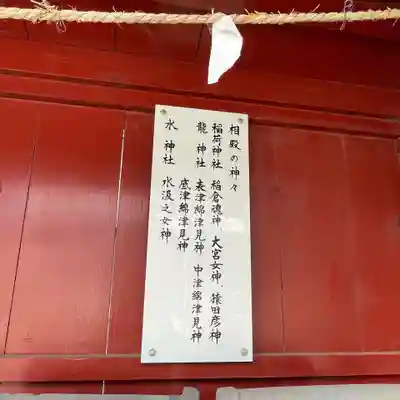 相殿の神々
稲荷神社 稲倉魂神 大宮女神 猿田彦神
龍神社 表津綿津見神 中津綿津見神
底津綿津見神
水神社 水汲之女神